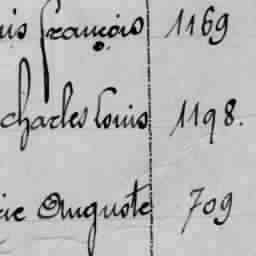 françois 1169
charles Louis 1198.
Auguste 709